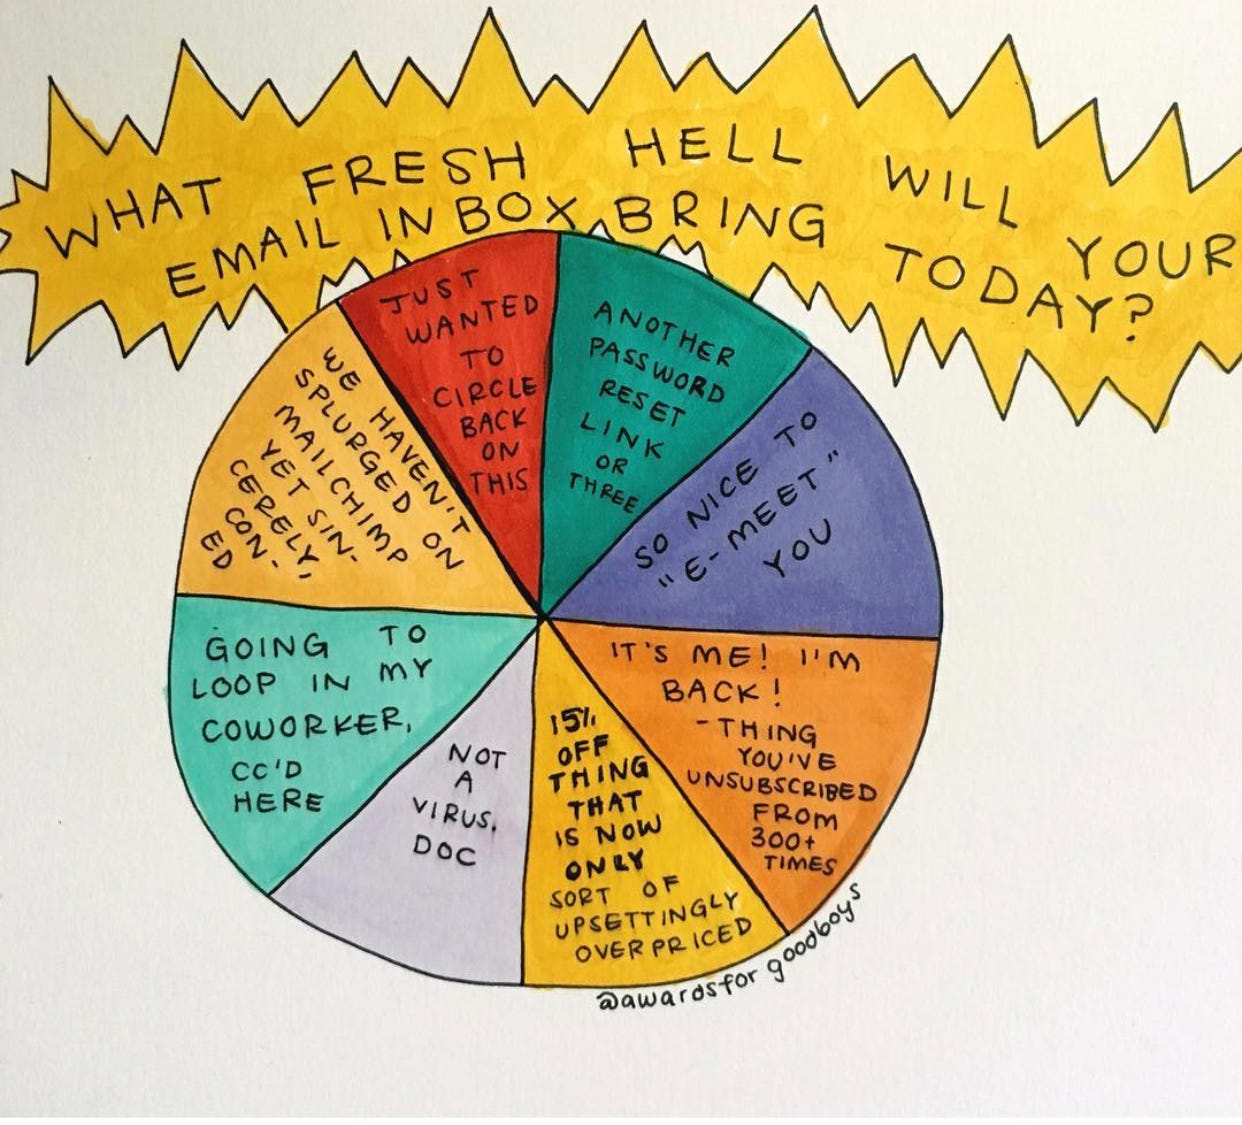 WHAT FRESH HELL WILL YOUR
EMAIL INBOX BRING TODAY?
JUST
WANTED
TO
CIRCLE
BACK
ON
THIS
ANOTHER
PASSWORD
RESET
LINK
OR
THREE
SO NICE TO
"E-MEET"
YOU
IT'S ME! I'M
BACK!
-THING
YOU'VE
UNSUBSCRIBED
FROM
300+
TIMES
15%
OFF
THING
THAT
IS NOW
ONLY
SORT OF
UPSETTINGLY
OVERPRICED
NOT
A
VIRUS.
DOC
GOING TO
LOOP IN MY
COWORKER,
CC'D
HERE
WE HAVEN'T
SPLURGED ON
MAILCHIMP
YET SIN-
CERELY,
CON-
ED
@awardsforgoodboys